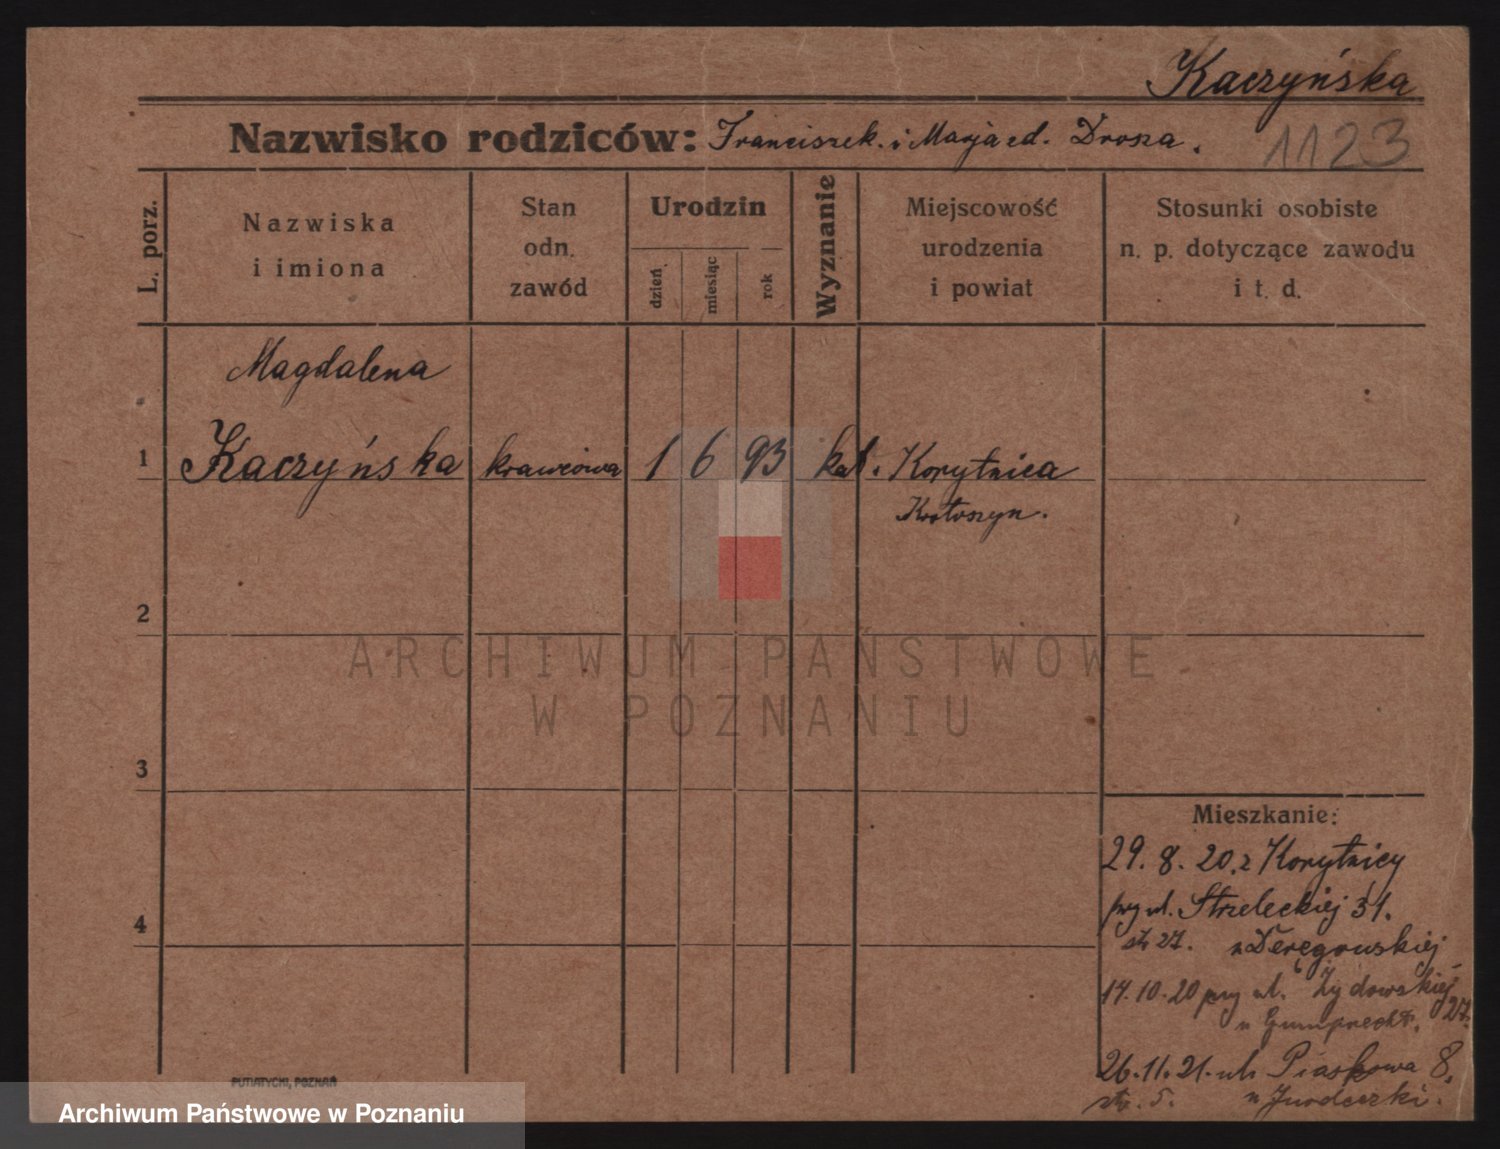 Kaczyńska
Nazwisko rodziców: Franciszek i Marja zd. Drosza.
1123
L. porz.
Nazwiska
i imiona
Stan
odn.
zawód
Urodzin
dzień
miesiąc
rok
Wyznanie
Miejscowość
urodzenia
i powiat
Stosunki osobiste
n. p. dotyczące zawodu
i t. d.
Magdalena
1 Kaczyńska krawcowa 1 6 93 kat. Korytnica
Krotoszyn.
2
ARCHIWUM PAŃSTWOWE
W POZNANIU
3
Mieszkanie:
29.8.20. z Korytnicy
przy ul. Strzeleckiej 31.
str 27. u Deręgowskiej
4
14.10.20 przy ul. Żydowskiej 27.
u Gumprecht.
26.11.21. ul. Piaskowa 8.
str. 5. u
PUTIATYCKI, POZNAŃ
Archiwum Państwowe w Poznaniu